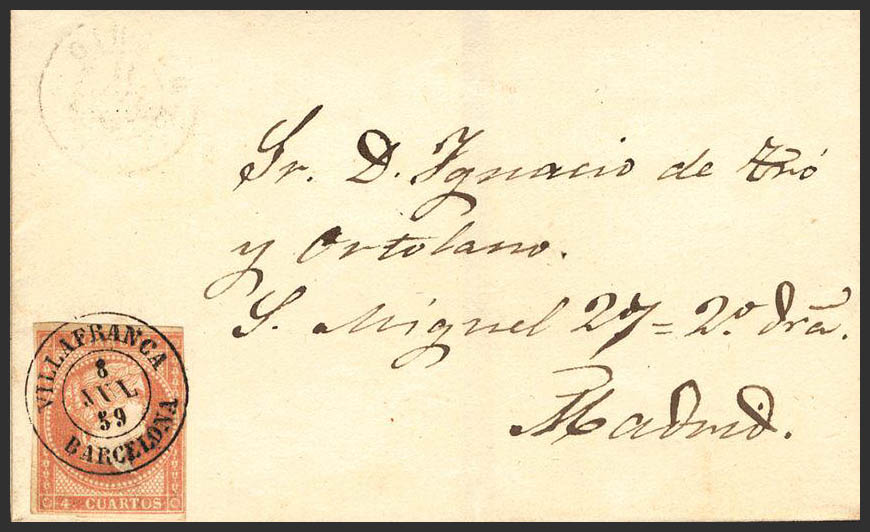 Sr. D. Ignacio de Tró
y Ortolano.
S. Miguel 27 = 2º drã.
Madrid.
VILLAFRANCA
8
JUL
59
BARCELONA
4 CUARTOS